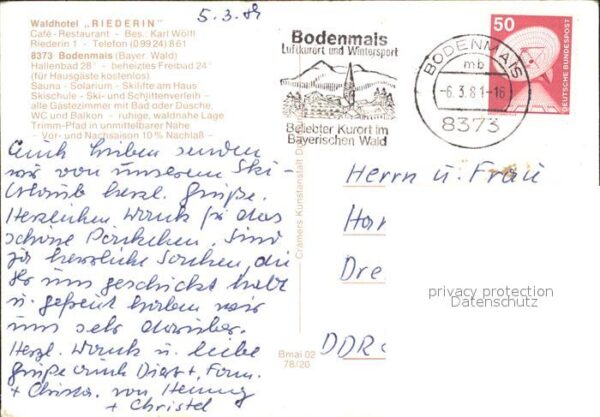 Waldhotel „RIEDERIN"
Café - Restaurant - Bes. Karl Wölfl
Riederin 1 - Telefon (0 99 24) 8 61
8373 Bodenmais (Bayer. Wald)
Hallenbad 28° - beheiztes Freibad 24°
(für Hausgäste kostenlos)
Sauna - Solarium - Skilifte am Haus
Skischule - Ski- und Schlittenverleih -
alle Gästezimmer mit Bad oder Dusche,
WC und Balkon - ruhige, waldnahe Lage
Trimm-Pfad in unmittelbarer Nähe
- Vor- und Nachsaison 10 % Nachlaß -
5.3.81
Euch lieben senden
wir von unserem Ski-
Urlaub herzl. Grüße.
Herzlichen Dank für das
schöne Päckchen. Sind
ja herrliche Sachen, die
Ihr uns geschickt habt
u. gefreut haben wir
uns sehr darüber.
Herzl. Dank u. liebe
Grüße auch Fam.
+ Christa. von Henning
+ Christel
Cramers Kunstanstalt
Bmai 02
78/20
Bodenmais
Luftkurort und Wintersport
Beliebter Kurort im
Bayerischen Wald
BODENMAIS
mb
-6.3.81-16
8373
50
DEUTSCHE BUNDESPOST
Herrn u. Frau
Har
Dre
DDR
privacy protection
Datenschutz